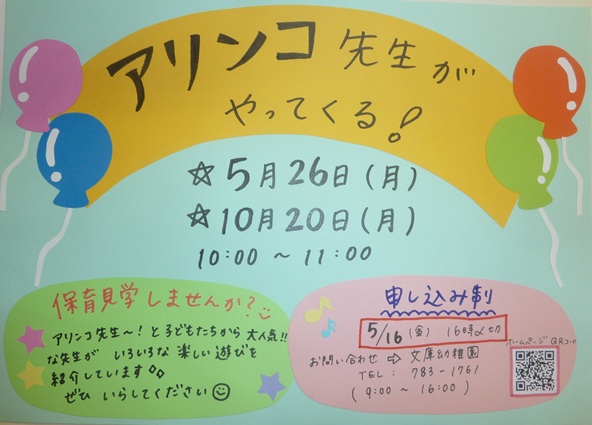 アリンコ先生が
やってくる!
☆5月26日(月)
☆10月20日(月)
10:00 ~ 11:00
保育見学しませんか?
アリンコ先生~!と子どもたちから大人気!!
な先生が いろいろな楽しい遊びを
紹介しています
ぜひ いらしてください
申し込み制
5/16(金) 16時〆切
お問い合わせ ⇨ 文庫幼稚園
TEL: 783-1761
(9:00 ~ 16:00)
ホームページQRコード